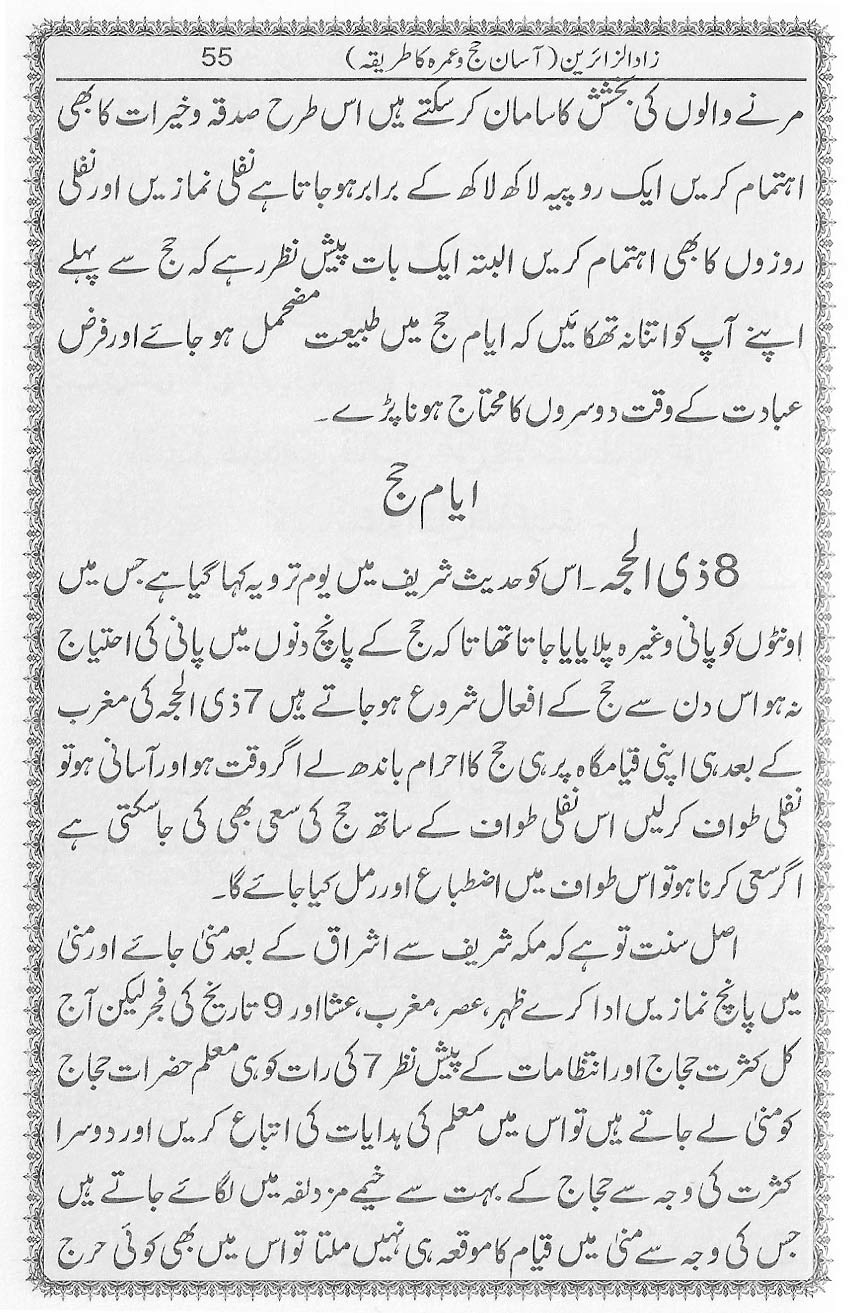 زادالزائرین (آسان حج وعمرہ کا طریقہ) 55
مرنے والوں کی بخشش کا سامان کر سکتے ہیں اس طرح صدقہ وخیرات کا بھی
اہتمام کریں ایک روپیہ لاکھ لاکھ کے برابر ہوجاتا ہے نفلی نمازیں اور نفلی
روزوں کا بھی اہتمام کریں البتہ ایک بات پیش نظر رہے کہ حج سے پہلے
اپنے آپ کو اتنا نہ تھکائیں کہ ایام حج میں طبیعت مضمحمل ہو جائے اور فرض
عبادت کے وقت دوسروں کا محتاج ہونا پڑے۔
ایام حج
8 ذی الحجہ۔ اس کو حدیث شریف میں یوم ترویہ کہا گیا ہے جس میں
اونٹوں کو پانی وغیرہ پلایا یا جاتا تھا تا کہ حج کے پانچ دنوں میں پانی کی احتیاج
نہ ہو اس دن سے حج کے افعال شروع ہو جاتے ہیں 7 ذی الحجہ کی مغرب
کے بعد ہی اپنی قیام گاہ پر ہی حج کا احرام باندھ لے اگر وقت ہو اور آسانی ہو تو
نفلی طواف کر لیں اس نفلی طواف کے ساتھ حج کی سعی بھی کی جا سکتی ہے
اگر سعی کرنا ہو تو اس طواف میں اضطباع اور رمل کیا جائے گا۔
اصل سنت تو ہے کہ مکہ شریف سے اشراق کے بعد منیٰ جائے اور منیٰ
میں پانچ نمازیں ادا کرے ظہر، عصر، مغرب، عشا اور 9 تاریخ کی فجر لیکن آج
کل کثرت حجاج اور انتظامات کے پیش نظر 7 کی رات کو ہی معلم حضرات حجاج
کو منیٰ لے جاتے ہیں تو اس میں معلم کی ہدایات کی اتباع کریں اور دوسرا
کثرت کی وجہ سے حجاج کے بہت سے خیمے مزدلفہ میں لگائے جاتے ہیں
جس کی وجہ سے منیٰ میں قیام کا موقعہ ہی نہیں ملتا تو اس میں بھی کوئی حرج